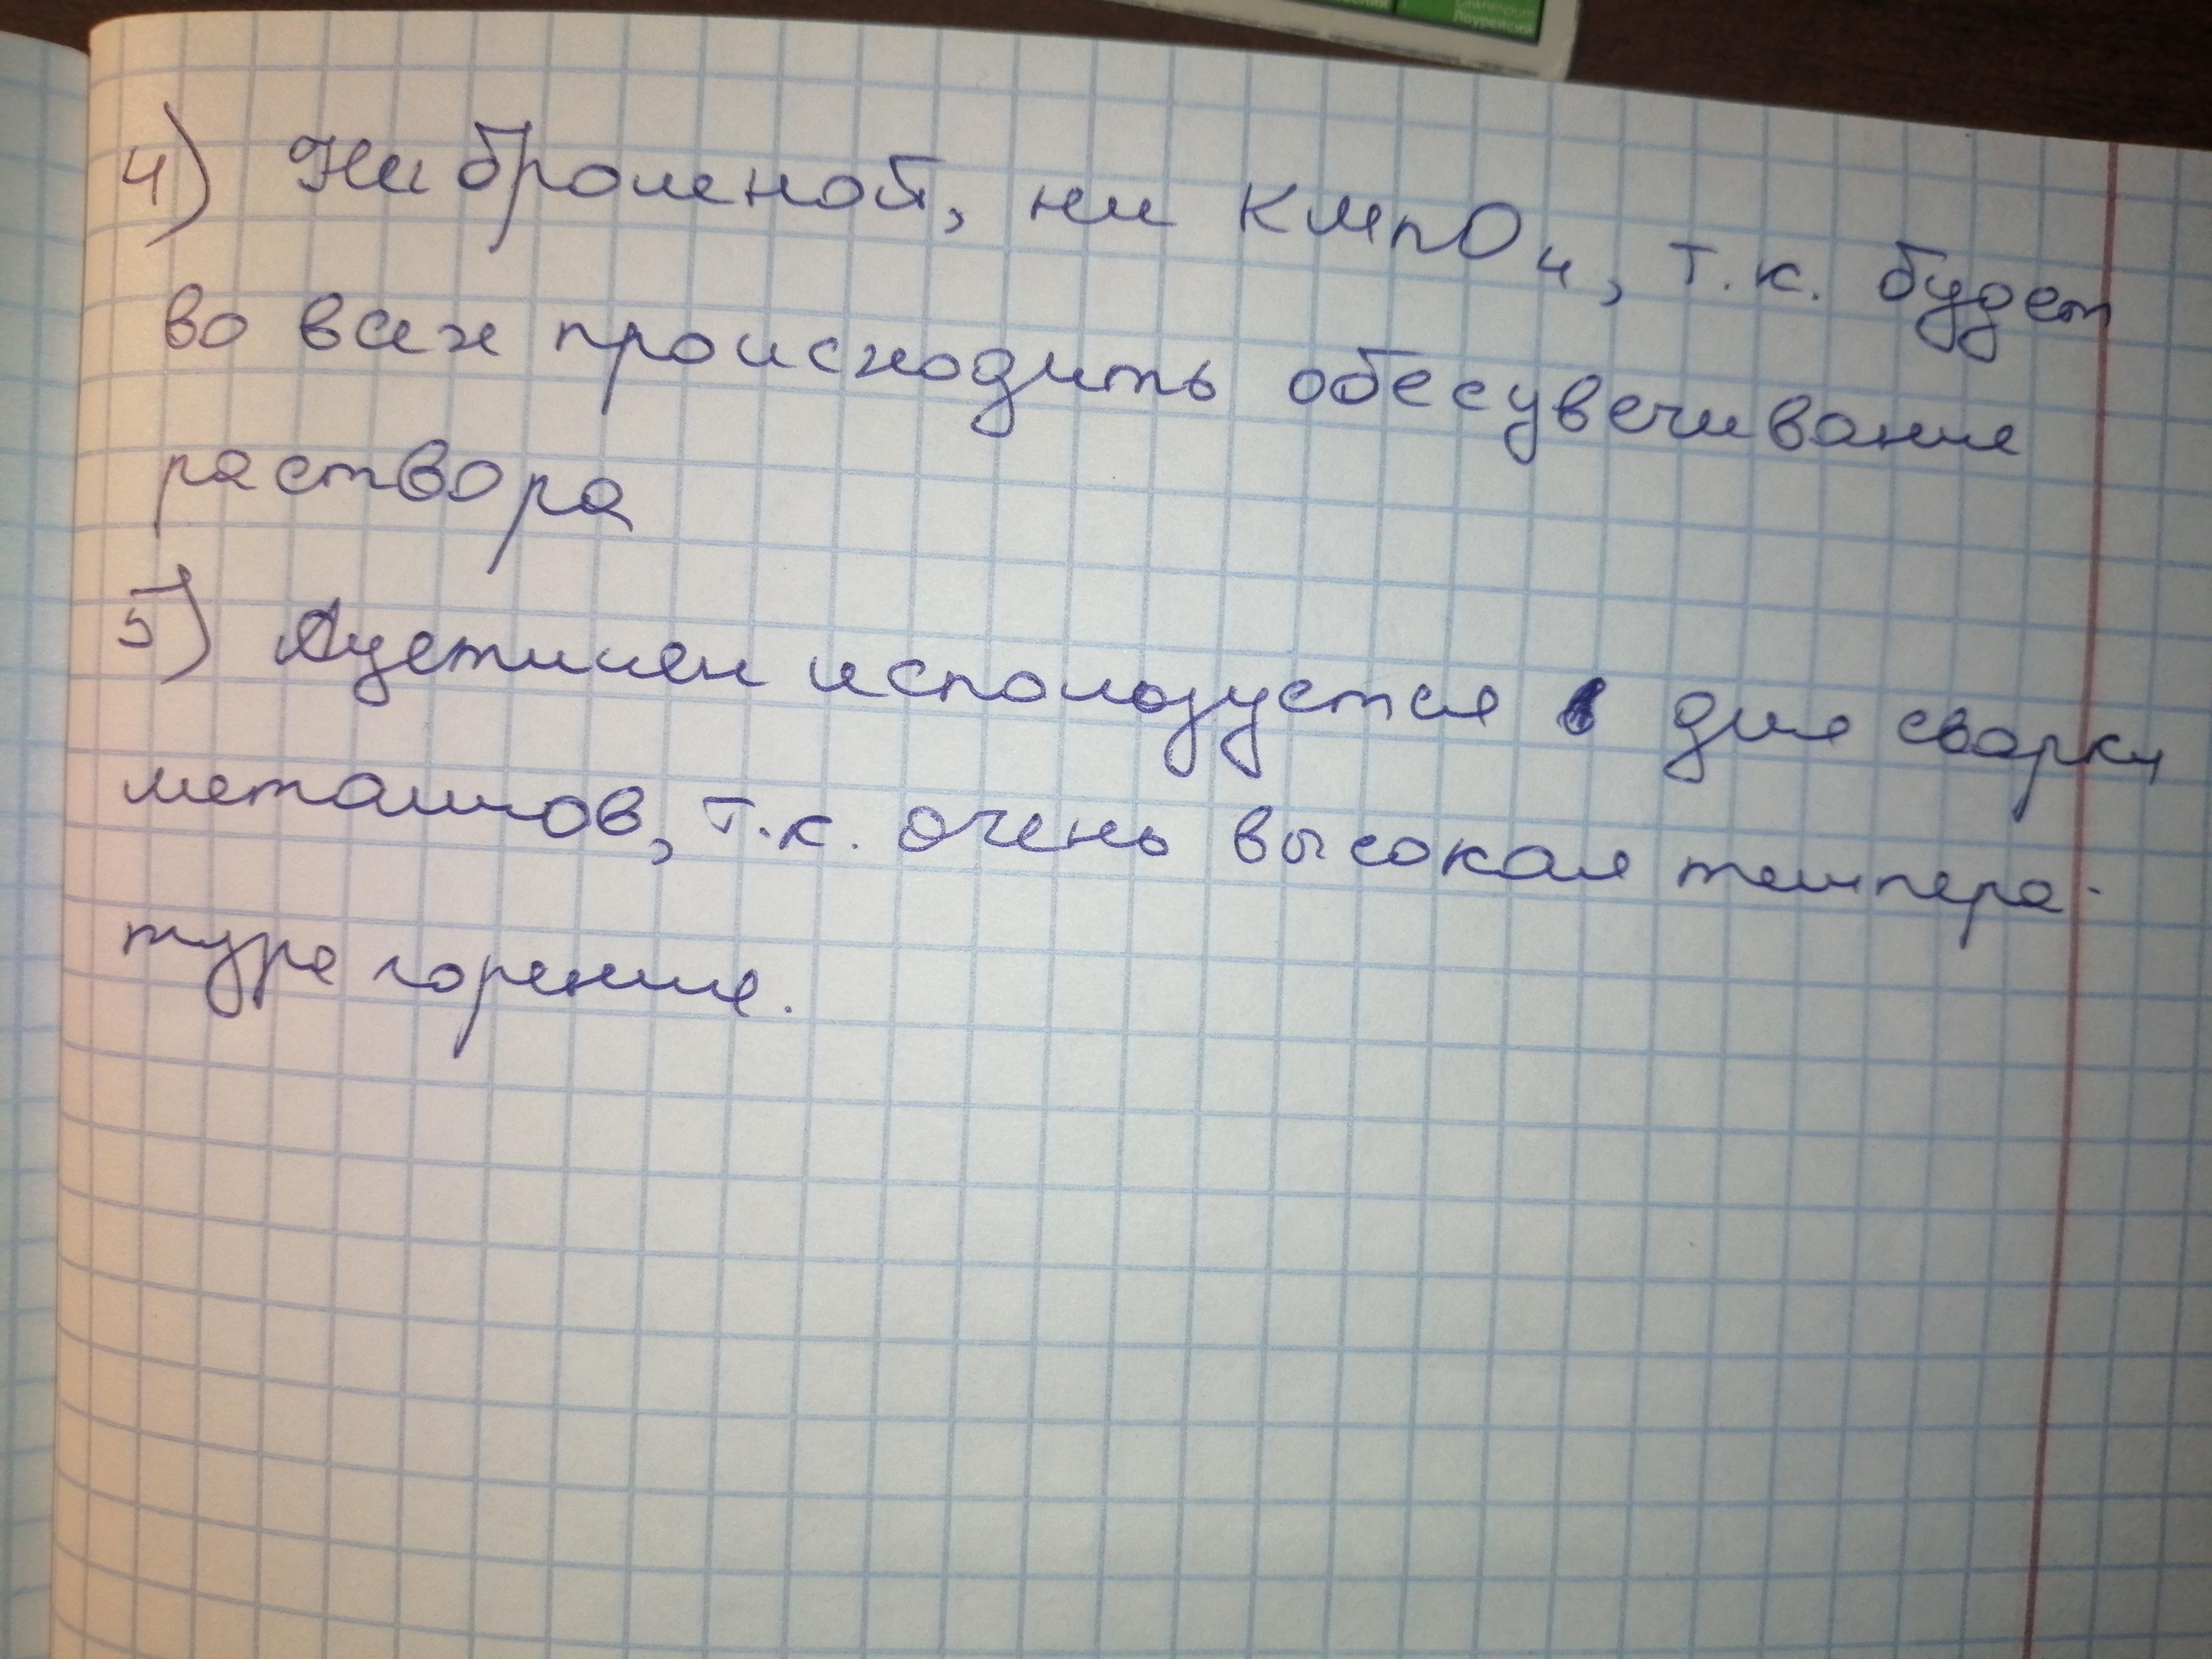 Лоуренсий
4) Ни бромной, ни KMnO4, т.к. будет
во всех происходить обесцвечивание
раствора
5) Ацетилен используется для сварки
металлов, т.к. очень высокая темпера-
тура горения.